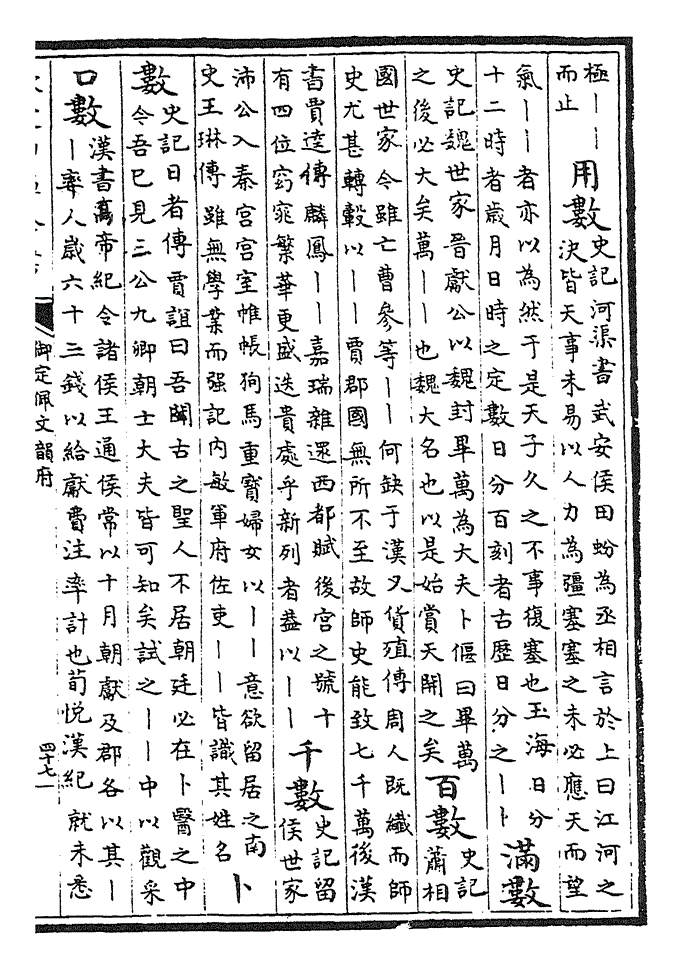 極｜｜
而止
用數
史記河渠書武安侯田蚡為丞相言於上曰江河之
決皆天事未易以人力為彊塞塞之未必應天而望
氣｜｜者亦以為然于是天子久之不事復塞也玉海日分
十二時者歲月日時之定數日分百刻者古歷日分之｜卜
滿數
史記魏世家晉獻公以魏封畢萬為大夫卜偃曰畢萬
之後必大矣萬｜｜也魏大名也以是始賞天開之矣
百數
史記
蕭相
國世家令雖亡曹參等｜｜何缺于漢又貨殖傳周人既纖而師
史尤甚轉轂以｜｜賈郡國無所不至故師史能致七千萬後漢
書賈逵傳麟鳳｜｜嘉瑞雜遝西都賦後宮之號十
有四位窈窕繁華更盛迭貴處乎新列者蓋以｜｜
千數
史記留
侯世家
沛公入秦宮宮室帷帳狗馬重寶婦女以｜｜意欲留居之南
史王琳傳雖無學業而强記内敏軍府佐吏｜｜皆識其姓名
卜
數
史記日者傳賈誼曰吾聞古之聖人不居朝廷必在卜醫之中
令吾已見三公九卿朝士大夫皆可知矣試之｜｜中以觀采
口數
漢書高帝紀令諸侯王通侯常以十月朝獻及郡各以其｜
｜率人歲六十三錢以給獻費注率計也荀悦漢紀就未悉
御定佩文韻府
四十七一